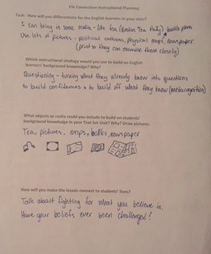 Task: How will you differentiate for the English learners in your class?
I can bring in some realia - like tea (Boston Tea Party),
Use lots of pictures - political cartoons, physical maps, newspaper
(print so they can examine these closely)
Which instructional strategy would you use to build on English
learners' background knowledge? Why?
Questioning - turning what they already know into questions
to build confidence & to build off what they know (metacognition)
What objects or realia could you include to build on students'
background knowledge in your text set topic? Why? Draw pictures.
Tea, pictures, maps, newspaper
How will you make the lesson connect to students' lives?
Talk about fighting for what you believe in.
Have your beliefs ever been challenged?